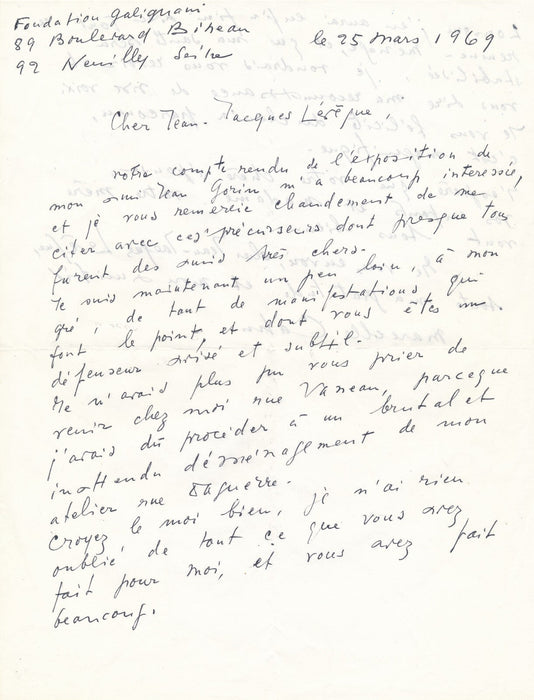 Fondation Galignani
89 Boulevard Bineau
92 Neuilly Seine
le 25 mars 1969
Cher Jean-Jacques Lévêque,
votre compte rendu de l'exposition de
mon ami Jean Gorin m'a beaucoup intéressée,
et je vous remercie chaudement de me
citer avec ces précurseurs dont presque tous
furent des amis très chers.
Je suis maintenant un peu loin, à mon
gré, de tant de manifestations qui
font le point, et dont vous êtes un
défenseur avisé et subtil.
Je n'avais plus pu vous prier de
venir chez moi rue Vaneau, parceque
j'avais dû procéder à un brutal et
inattendu déménagement de mon
atelier rue Daguerre.
Croyez le moi bien, je n'ai rien
oublié de tout ce que vous avez
fait pour moi, et vous avez fait
beaucoup.